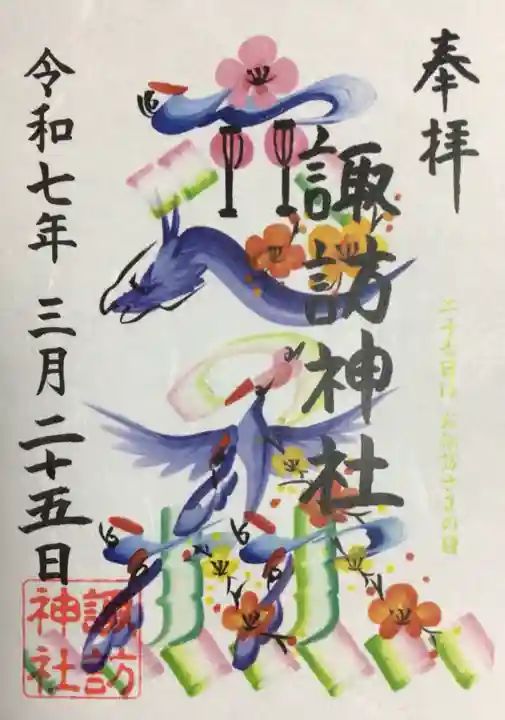 奉拝
二十七日は お諏訪さまの日
諏訪神社
令和七年 三月二十五日
諏訪
神社